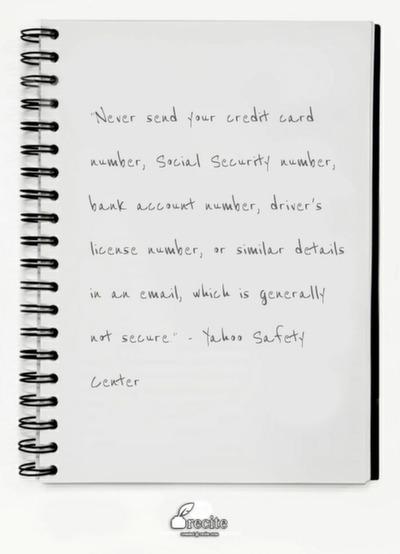 "Never send your credit card
number, Social Security number,
bank account number, driver's
license number, or similar details
in an email, which is generally
not secure." - Yahoo Safety
Center
recite
created @ recite.com